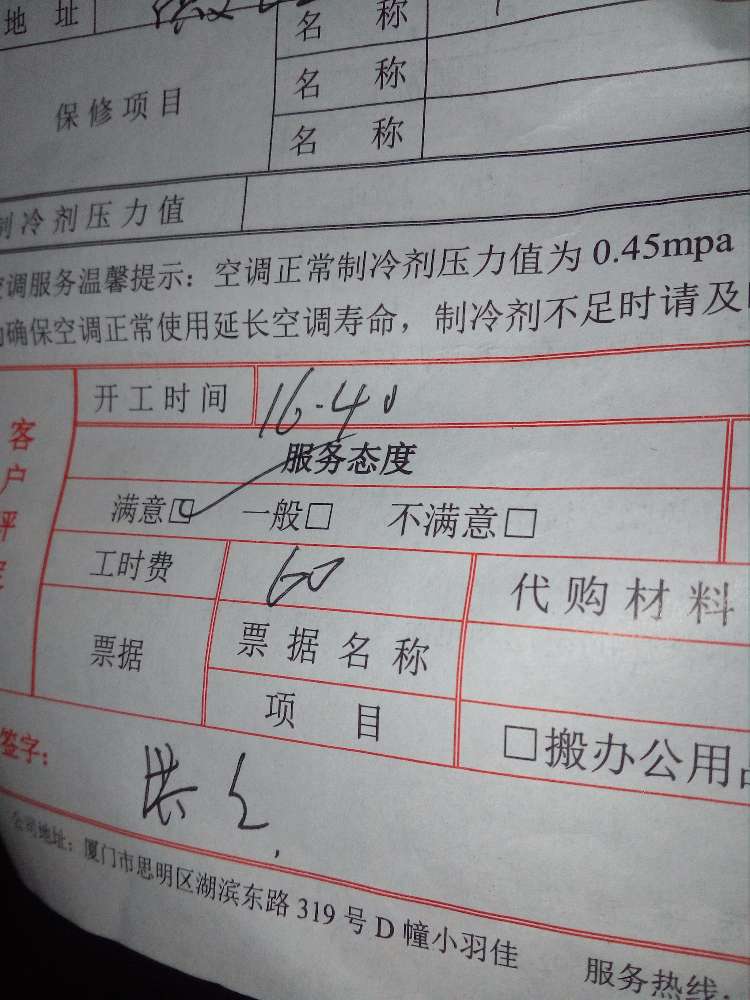 地 址
名 称
保修项目
名 称
名 称
制冷剂压力值
空调服务温馨提示：空调正常制冷剂压力值为 0.45mpa
确保空调正常使用延长空调寿命，制冷剂不足时请及
客户评定
开工时间 16-40
服务态度
满意□ 一般□ 不满意□
工时费 60 代购材料
票据 票据名称
项 目 □搬办公用品
签字：
公司地址：厦门市思明区湖滨东路 319 号 D 幢小羽佳 服务热线：